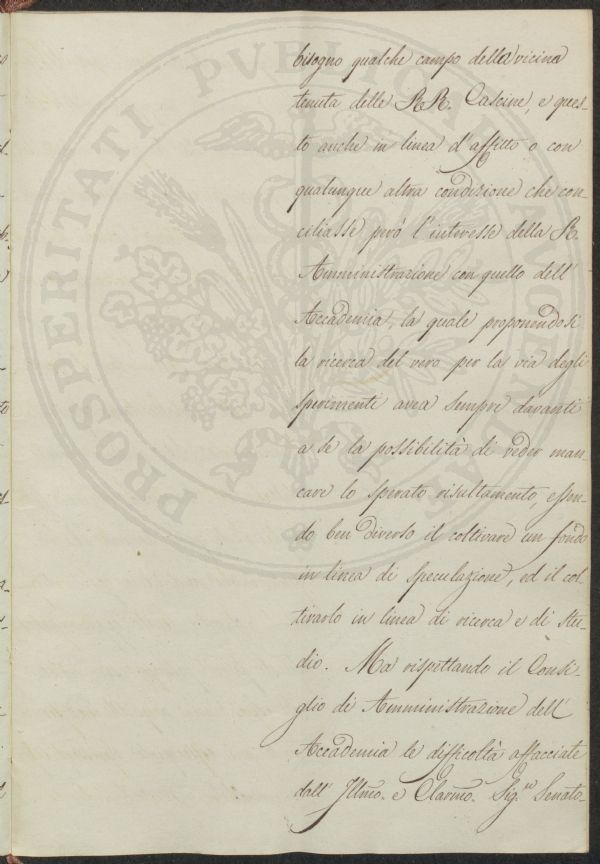 bisogno qualche campo della vicina
tenuta delle RR. Cascine, e ques-
to anche in linea d'affitto o con
qualunque altra condizione che con-
ciliasse però l'interesse della R.
Amministrazione con quello dell'
Accademia, la quale proponendosi
la ricerca del vero per la via degli
sperimenti avea sempre davanti
a se la possibilità di veder man
care lo sperato risultamento, essen-
do ben diverso il coltivare un fondo
in linea di speculazione, ed il col-
tivarlo in linea di ricerca e di stu-
dio. Ma rispettando il Consi-
glio di Amministrazione dell'
Accademia le difficoltà affacciate
dall' Illmo. e Clarmo. Sig.re Senato-
PROSPERITATI PUBLICAE AUGENDAE